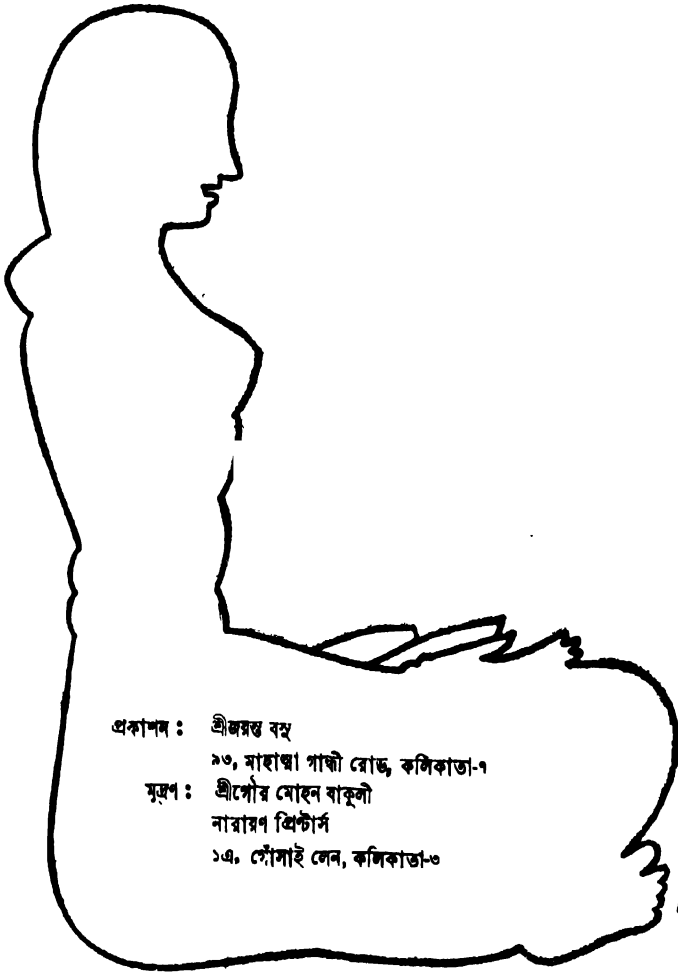 প্রকাশন : শ্রীজয়ন্ত বসু
৯৩, মাহাত্মা গান্ধী রোড, কলিকাতা-৭
মুদ্রণ : শ্রীগৌর মোহন বাকুলী
নারায়ণ প্রিণ্টার্স
১এ. গোঁসাই লেন, কলিকাতা-৩